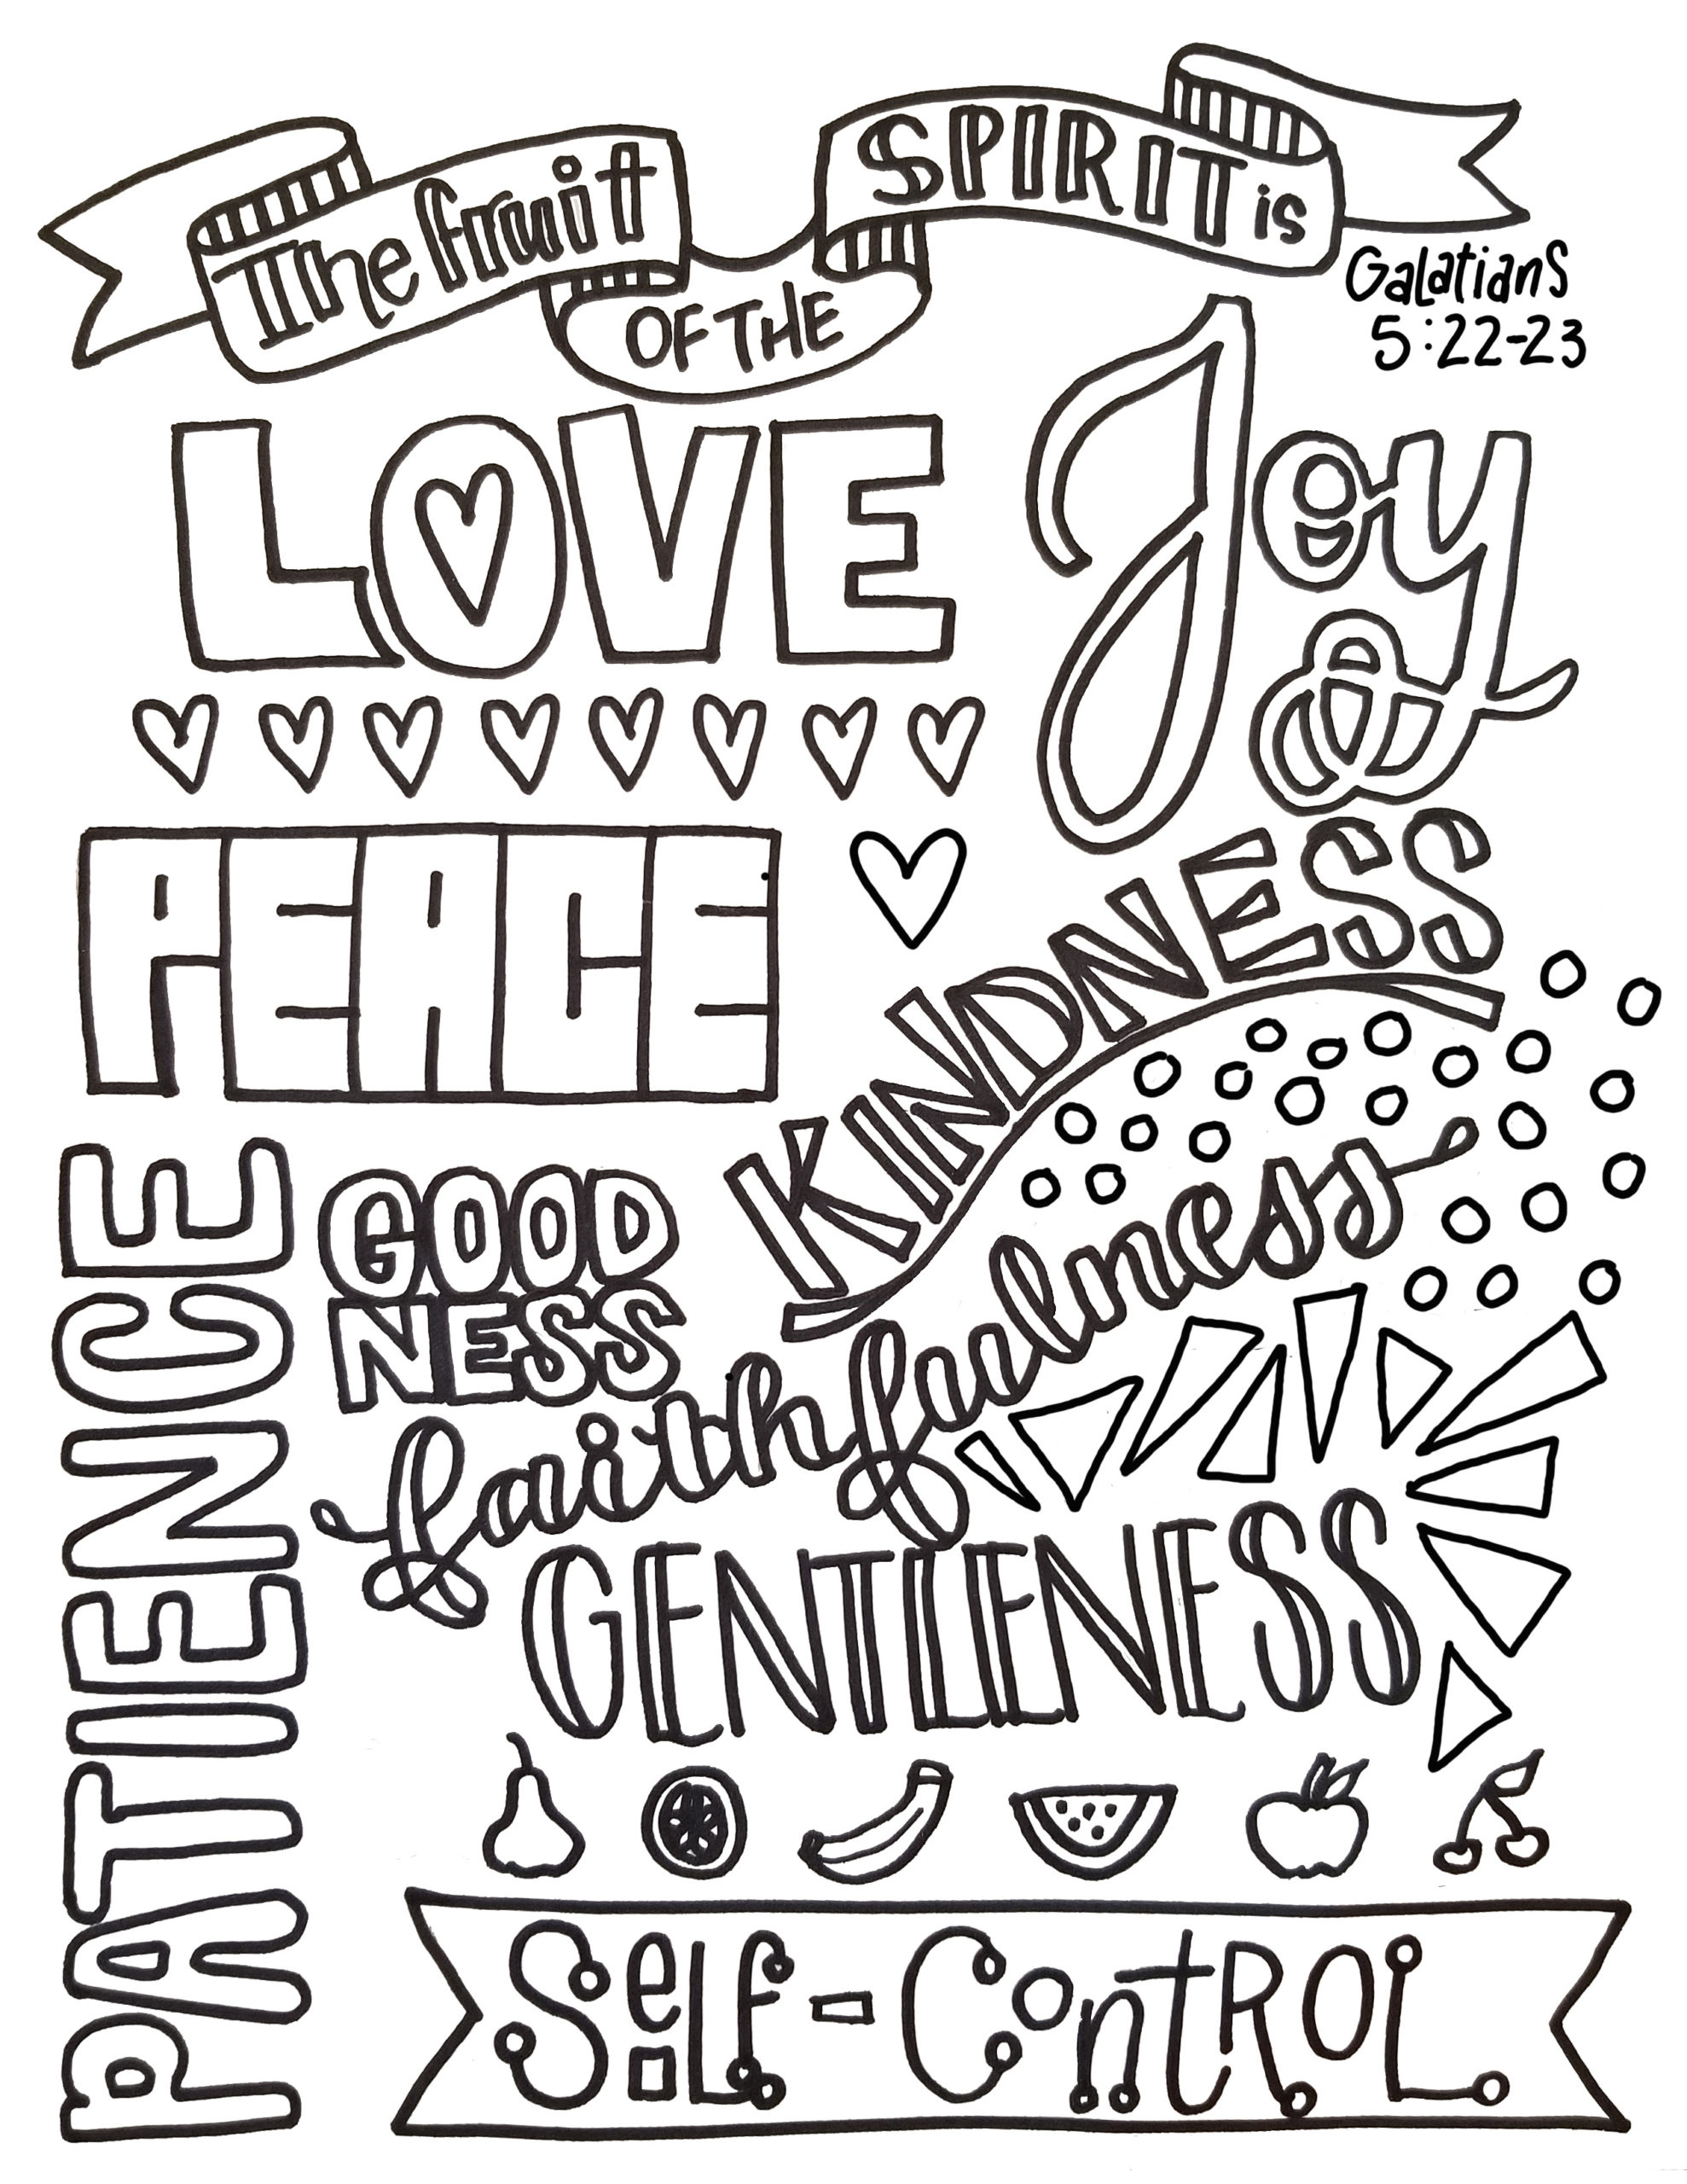 The fruit
OF THE
SPIRIT is
Galatians
5:22-23
LOVE
Joy
PEACE
KINDNESS
PATIENCE
GOOD
NESS
faithfulness
GENTLENESS
Self-Control